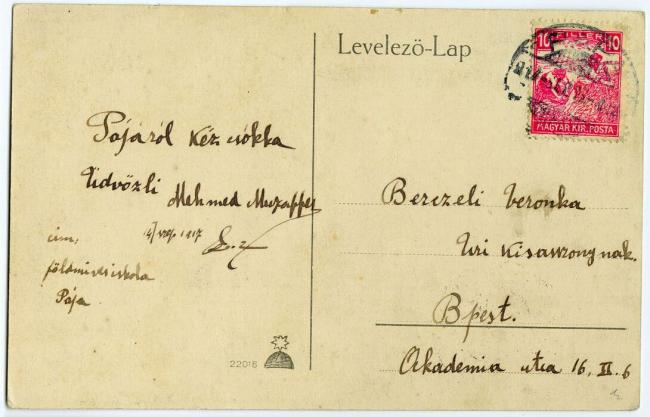 Levelező-Lap
10 FILLÉR 10
MAGYAR KIR. POSTA
Pápáról kéz csókka
Üdvözli Mehmed Muzaffer
1917
cim;
földmivesiskola
Pápa
Berczeli Veronka
Uri kisasszonynak.
Bpest.
Akademia utca 16. II. 6
22016